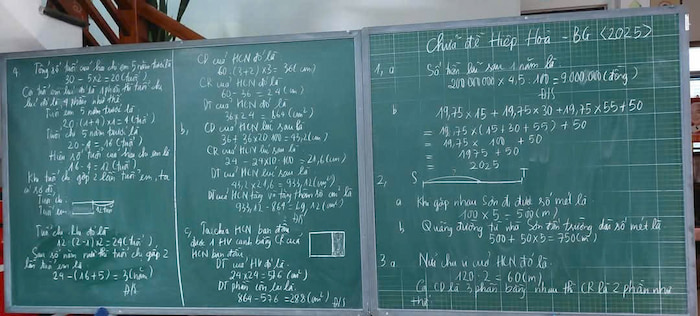 Chữa đề Hiệp Hoà - BG <2025>
1, a Số tiền lãi sau 1 năm là
200.000.000 x 4,5 : 100 = 9.000.000 (đồng)
Đ/S
b 19,75 x 15 + 19,75 x 30 + 19,75 x 55 + 50
= 19,75 x (15 + 30 + 55) + 50
= 19,75 x 100 + 50
= 1975 + 50
= 2025
2, S T
a Khi gặp nhau Sơn đi được số mét là
100 x 5 = 500 (m)
b Quãng đường từ nhà Sơn đến trường dài số mét là
500 + 50 x 5 = 750 (m)
3. a Nửa chu vi của HCN đó là
120 : 2 = 60 (m)
Coi CD là 3 phần bằng nhau thì CR là 2 phần như
thế
CD của HCN đó là
60 : (3+2) x 3 = 36 (cm)
CR của HCN đó là
60 - 36 = 24 (cm)
DT của HCN đó là
36 x 24 = 864 (cm²)
b, CD của HCN lúc sau là
36 + 36 x 20 : 100 = 43,2 (cm)
CR của HCN lúc sau là
24 - 24 x 10 : 100 = 21,6 (cm)
DT của HCN lúc sau là
43,2 x 21,6 = 933,12 (cm²)
DT của HCN tăng thêm số cm² là
933,12 - 864 = 69,12 (cm²)
c, Ta chia HCN ban đầu
được 1 HV cạnh bằng CR của
HCN ban đầu
DT của HV đó là
24 x 24 = 576 (cm²)
DT phần còn lại là
864 - 576 = 288 (cm²) Đ/S
4. Tổng số tuổi của hai chị em 5 năm trước là
30 - 5 x 2 = 20 (tuổi)
Coi tuổi em lúc đó là 1 phần thì tuổi chị
lúc đó là 4 phần như thế
Tuổi em 5 năm trước là
20 : (1+4) x 1 = 4 (tuổi)
Tuổi chị 5 năm trước là
20 - 4 = 16 (tuổi)
Hiệu số tuổi của hai chị em là
16 - 4 = 12 (tuổi)
Khi tuổi chị gấp 2 lần tuổi em, ta
có sơ đồ
Tuổi chị
Tuổi em
Tuổi chị khi đó là
12 : (2-1) x 2 = 24 (tuổi)
Sau số năm nữa thì tuổi chị gấp 2
lần tuổi em là
24 - (16 + 5) = 3 (năm)
Đ/S